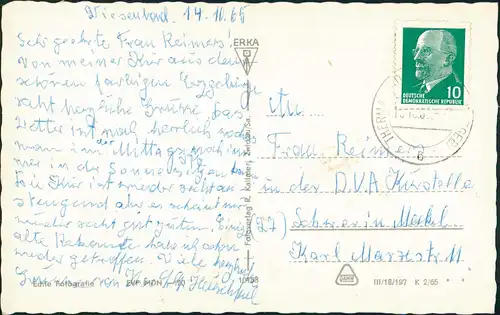 Wiesenbad, 14.10.65
Sehr geehrte Frau Reimers!
von meiner Kur aus dem
schönen farbigen Erzgebirge
recht herzliche Grüße. Das
Wetter ist noch herrlich
man im Mittags noch im-
mer in der Sonne
Die Kur ist wieder recht an-
strengend, aber es scheint mir
wieder recht gut zu tun. Einige
alte Bekannte habe ich schon
wieder getroffen. Viele herzliche
Grüße von
Echte Fotografie
ERKA
Fotoverlag R. Kallmer, Zwickau/Sa.
DEUTSCHE
DEMOKRATISCHE REPUBLIK
10
THERM
6
An
Frau Reimers
in der D.V.A Kursstelle
(27) Schwerin Meckl.
Karl Marxstr. 11
III/18/197 K 2/65